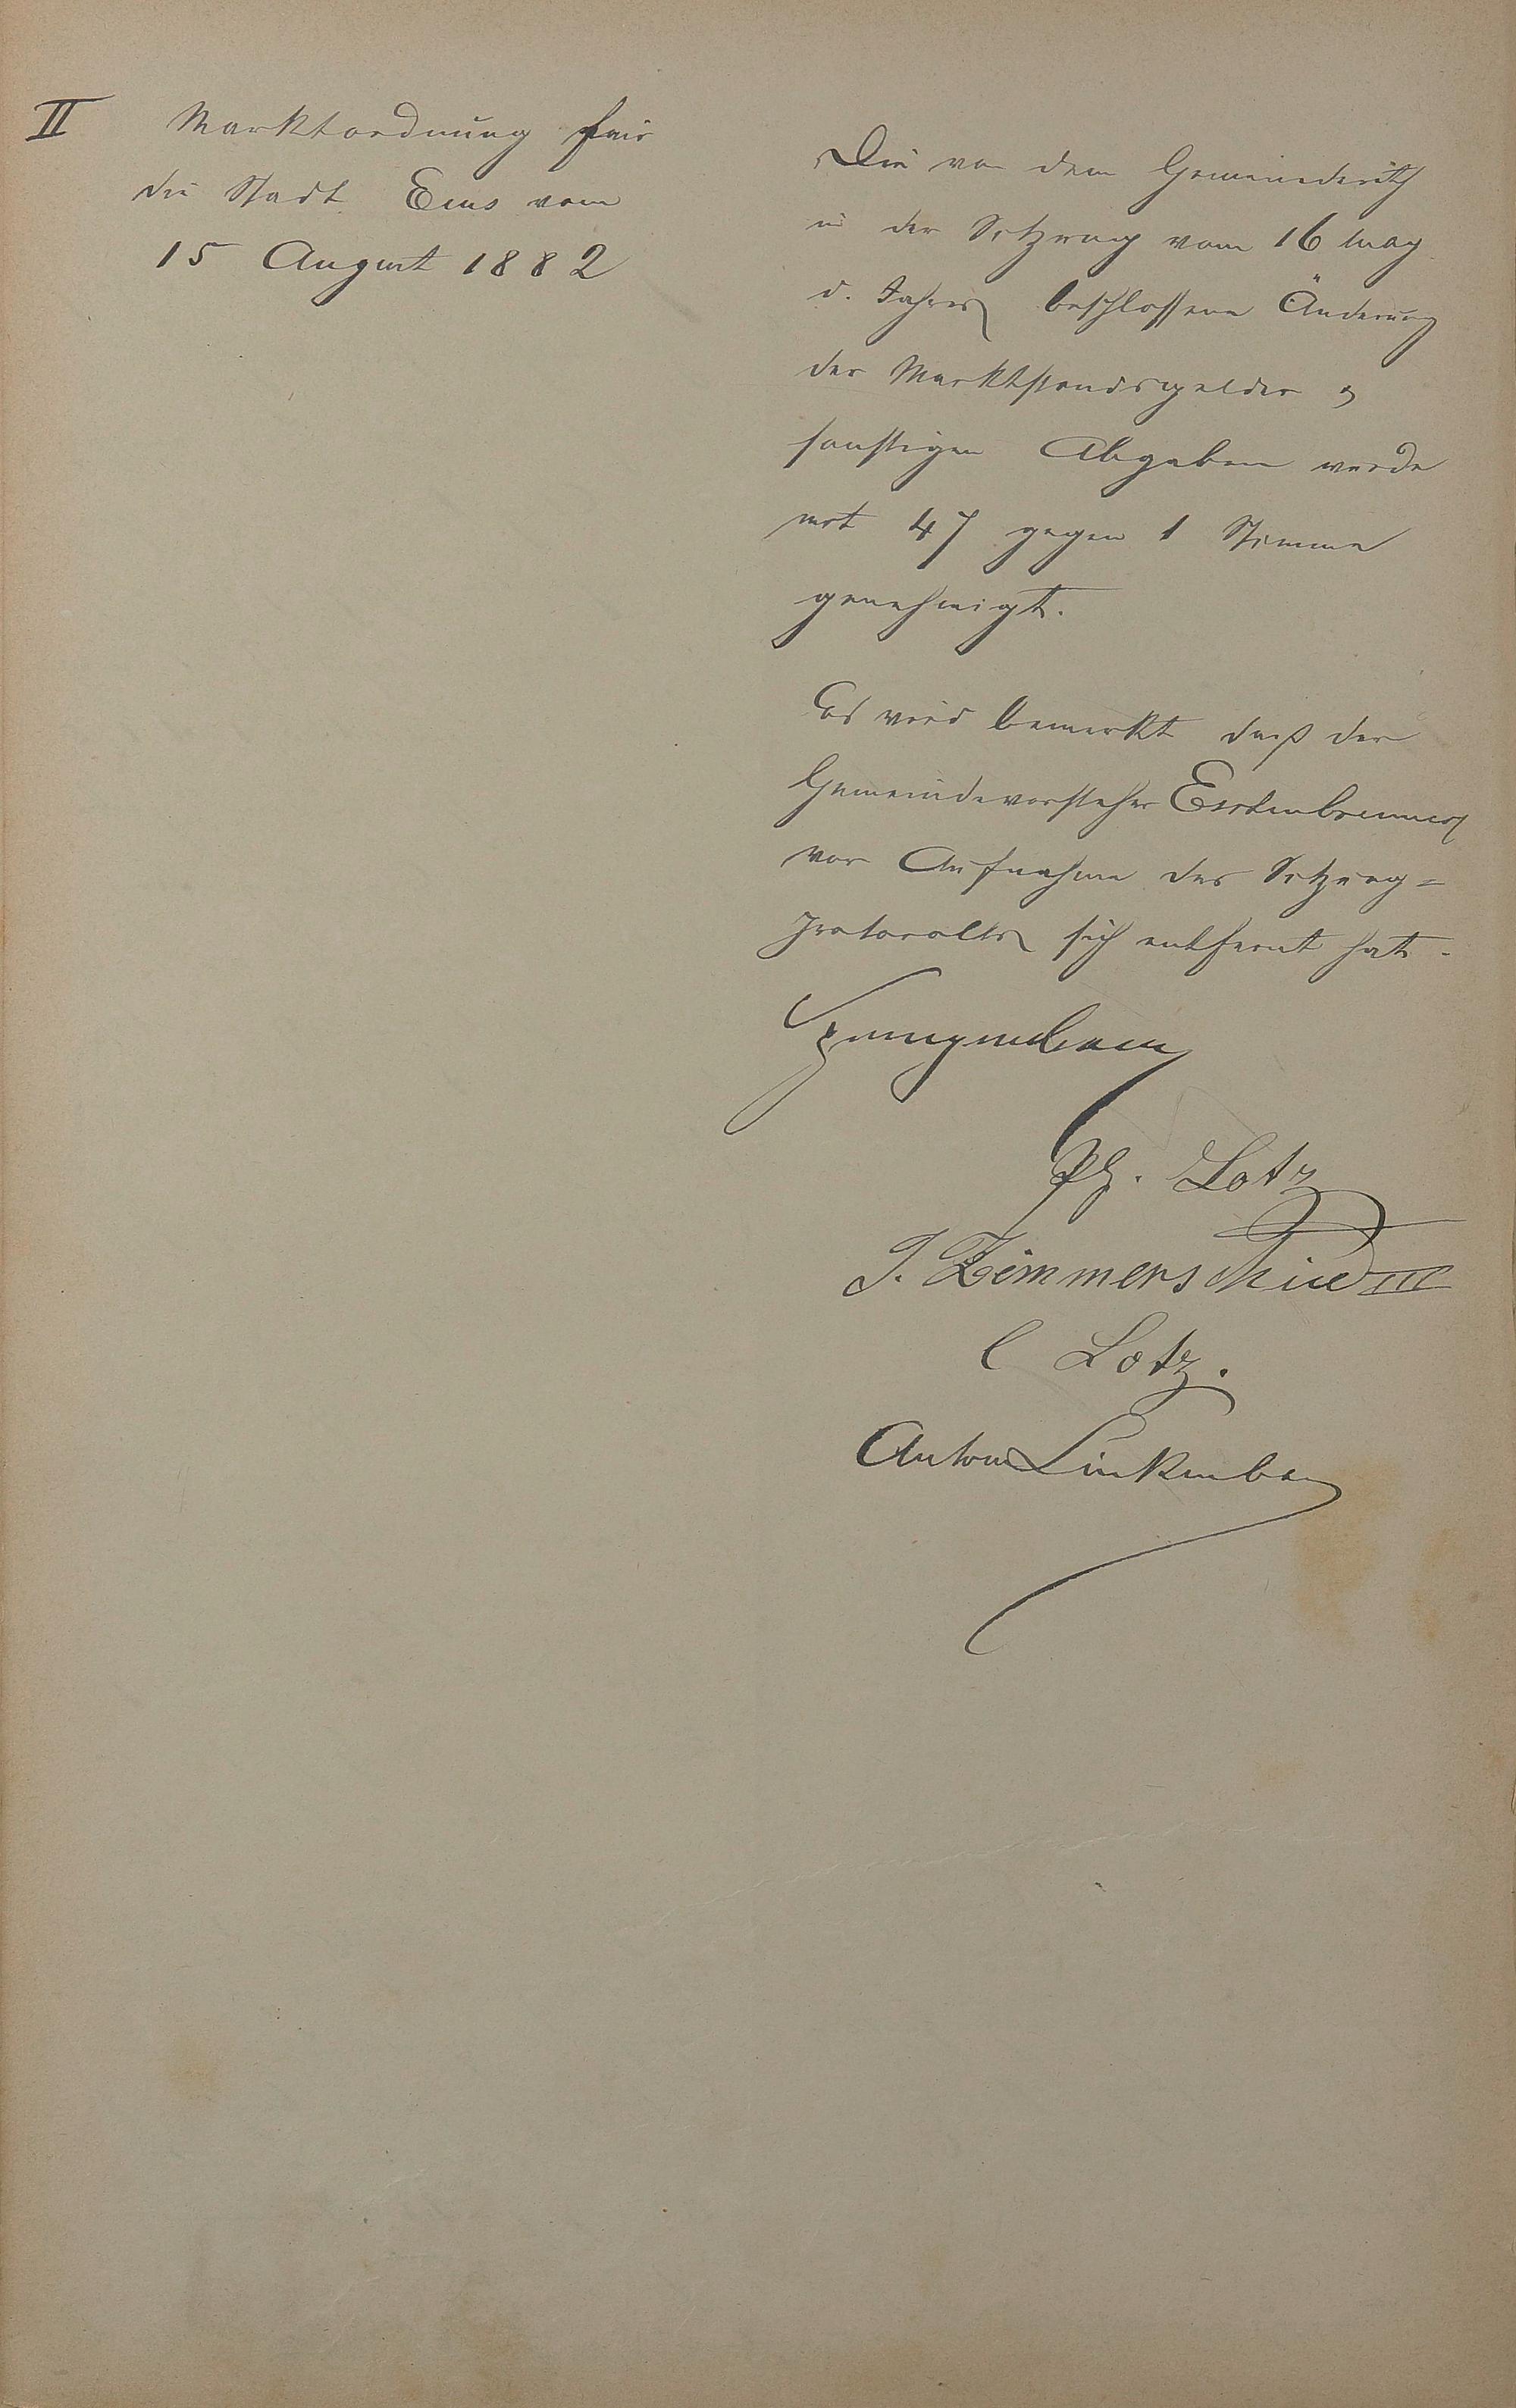 II Marktordnung für
die Stadt Ems vom
15 August 1882
Die von dem Gemeinderath
in der Sitzung vom 16 May
d. Jahres beschlossene Änderung
der Marktstandsgelder &
sonstigen Abgaben wurde
mit 47 gegen 1 Stimme
genehmigt.
Es wird bemerkt daß der
Gemeindevorsteher
vor Aufnahme des Sitzung=
protocolls sich entfernt hat.
Spangenberg
Ph. Lotz
J. Zimmerschied III
C Lotz.
Anton Linkenba